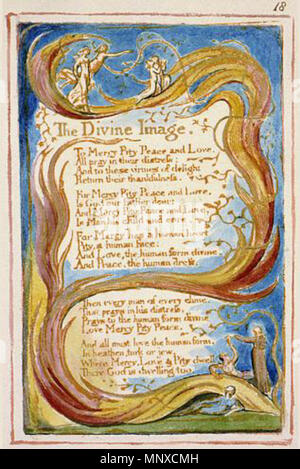 18
The Divine Image.
To Mercy Pity Peace and Love,
All pray in their distress:
And to these virtues of delight
Return their thankfulness.
For Mercy Pity Peace and Love,
Is God our father dear:
And Mercy Pity Peace and Love,
Is Man his child and care.
For Mercy has a human heart
Pity, a human face:
And Love, the human form divine,
And Peace, the human dress.
Then every man of every clime,
That prays in his distress,
Prays to the human form divine
Love Mercy Pity Peace.
And all must love the human form,
In heathen, turk or jew.
Where Mercy, Love & Pity dwell,
There God is dwelling too
alamy
Image ID: MNXCMH
www.alamy.com